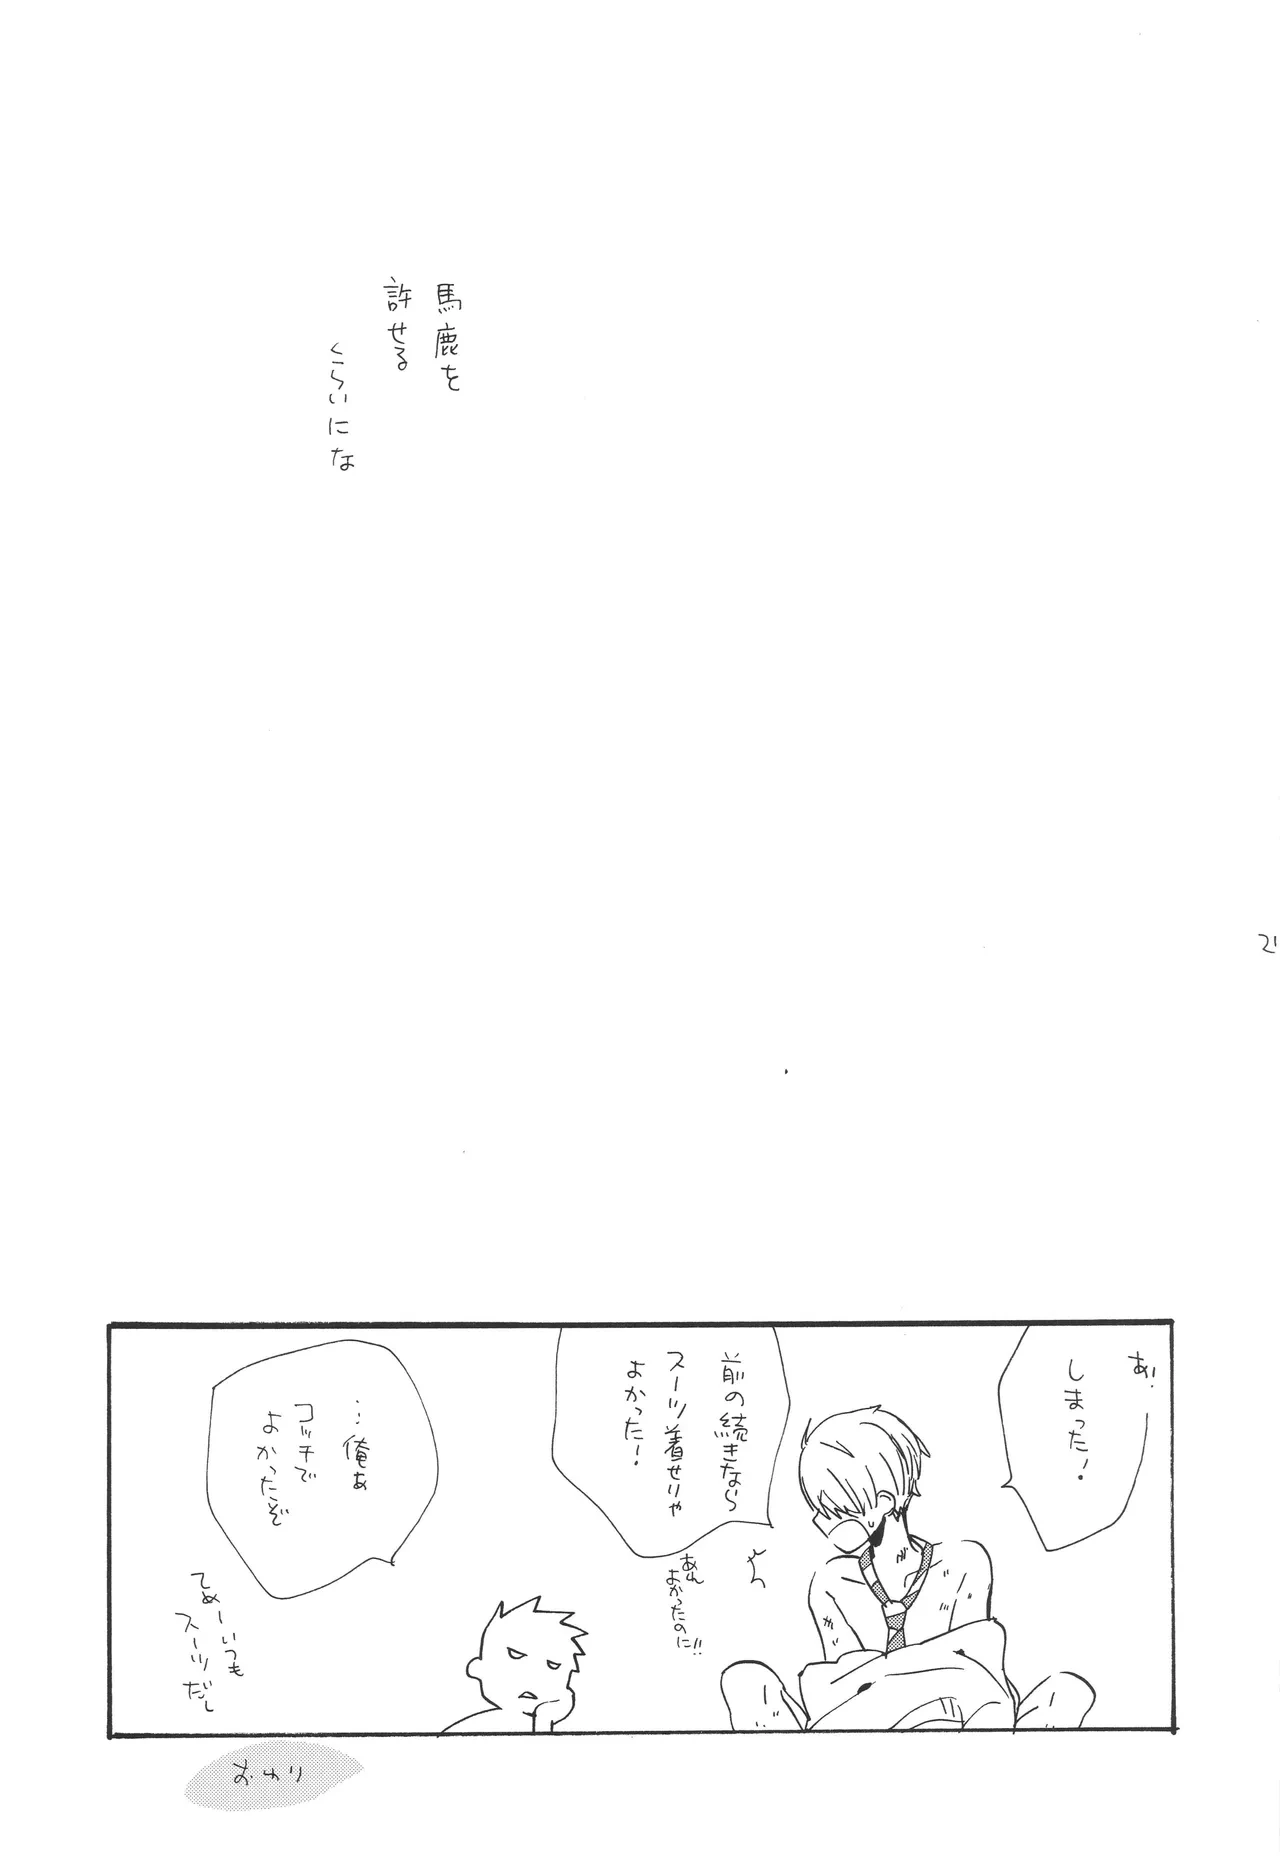 馬鹿を
許せる
くらいにな
21
あ!
しまった!
前の続きなら
スーツ着せりゃ
よかった!
あれ
よかったのに!!
…俺ぁ
コッチで
よかったぞ
てめーいつも
スーツだし
おわり